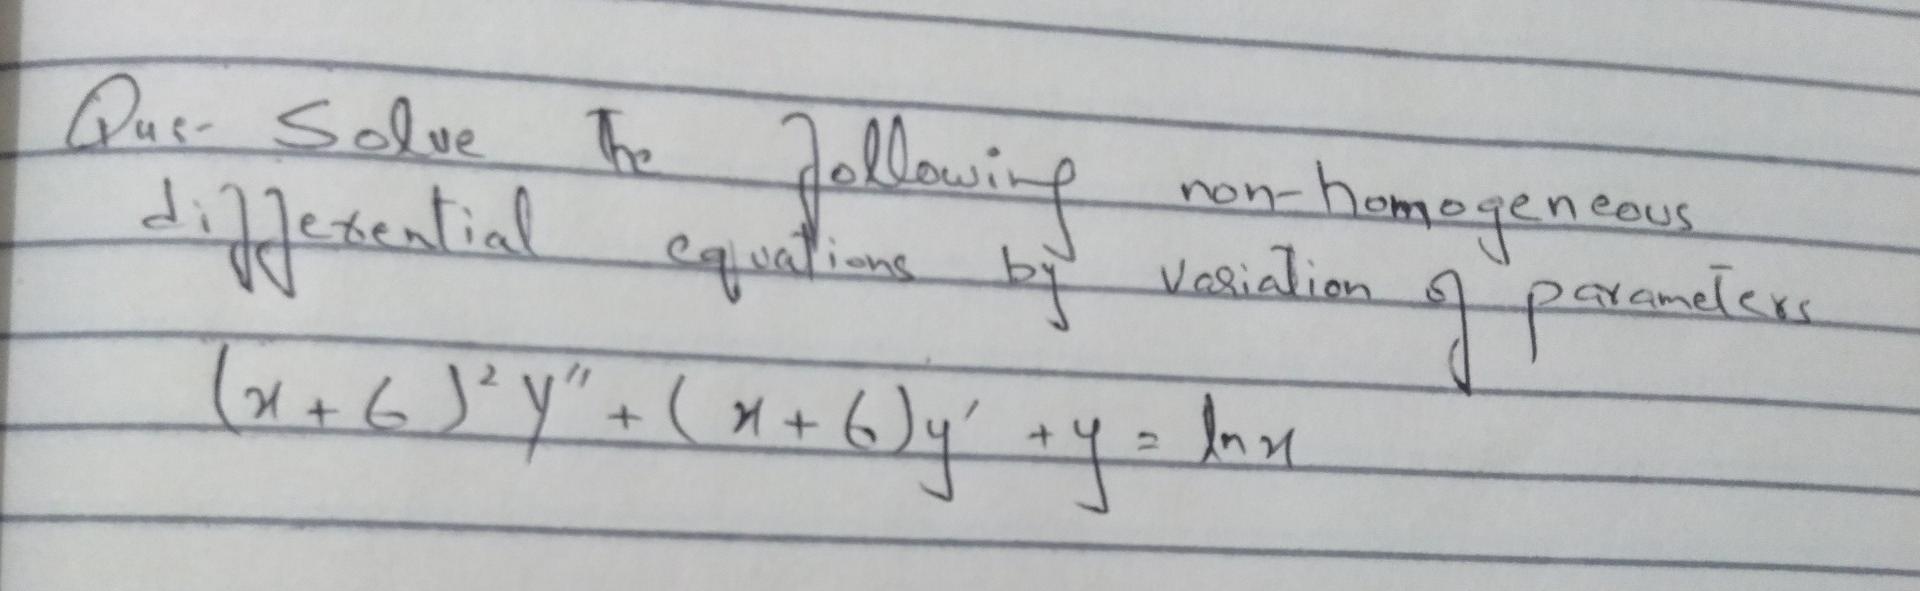 Que- Solve the following non-homogeneous
differential equations by variation of parameters
(x+6)²y"+(x+6)y'+y=lnx